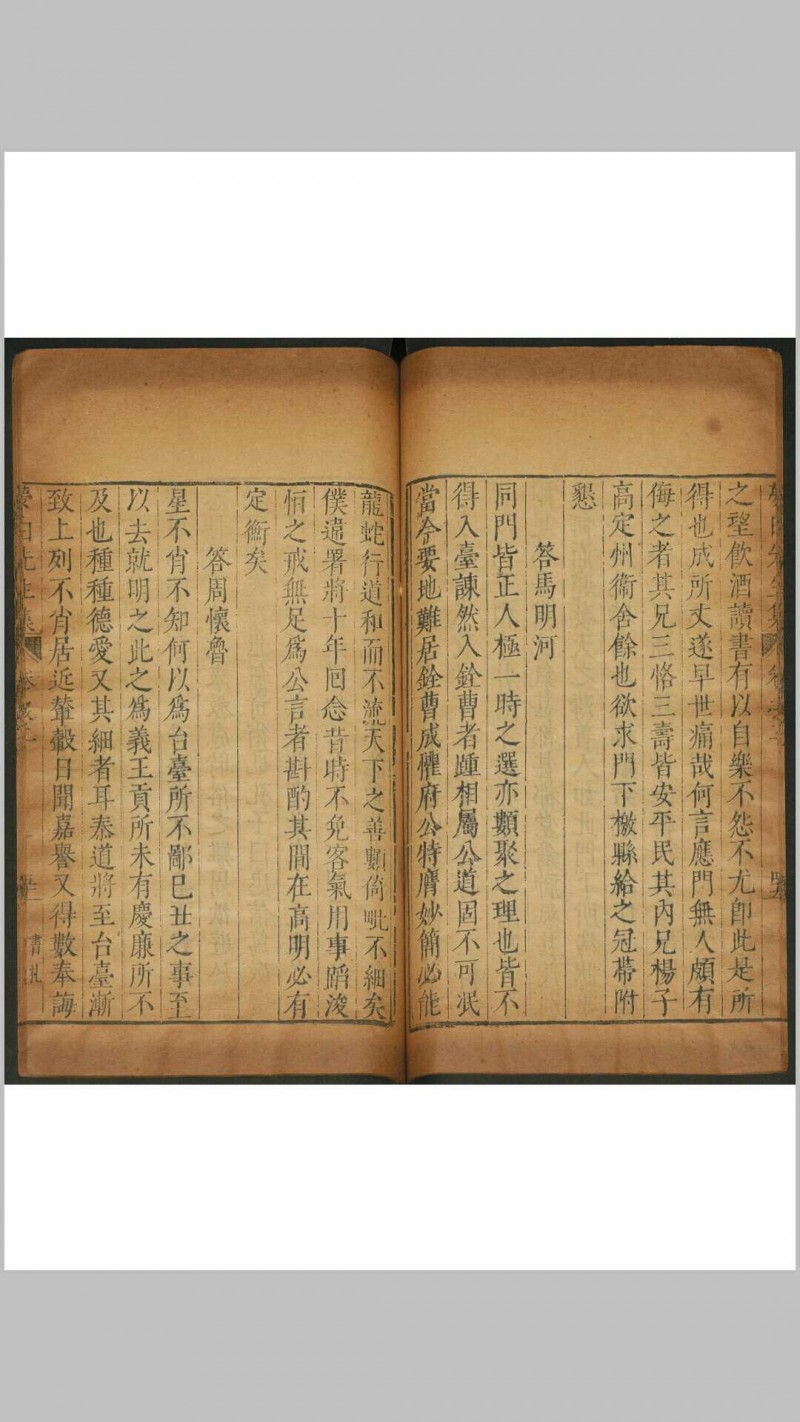 之望飲酒讀書有以自樂不怨不尤卽此是所
得也成所丈遂早世痛哉何言應門無人頗有
侮之者其兄三恪三壽皆安平民其內兄楊子
高定州衞舍餘也欲求門下檄縣給之冠帶附
懇
答馬明河
同門皆正人極一時之選亦類聚之理也皆不
得入臺諫然入銓曹者踵相屬公道固不可泯
當今要地難居銓曹成懼府公特膺妙簡必能
龍蛇行道和而不流天下之善類倚毗不細矣
僕違署將十年囘念昔時不免客氣用事蹈浚
恒之戒無足爲公言者斟酌其間在高明必有
定衡矣
答周懷魯
星不肖不知何以爲台臺所不鄙巳丑之事至
以去就明之此之爲義王貢所未有慶廉所不
及也種種德愛又其細者耳忝道將至台臺漸
致上列不肖居近輦轂日聞嘉譽又得數奉誨
先生集
書札